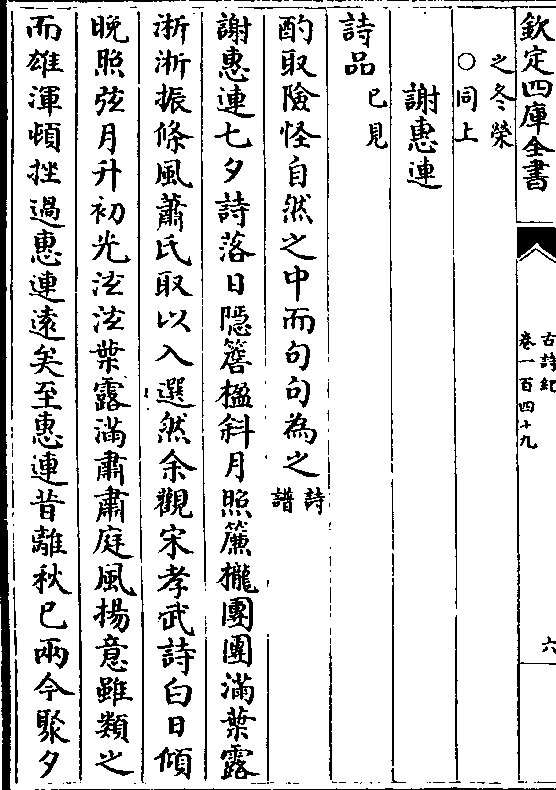 欽定四庫全書
古詩紀
卷一百四十九
六
之冬榮
○同上
謝惠連
詩品
已見
酌取險怪自然之中而句句為之
詩
譜
謝惠連七夕詩落日隱簷楹斜月照簾櫳團團滿葉露
淅淅振條風蕭氏取以入選然余觀宋孝武詩白日傾
晚照弦月升初光泫泫葉露滿肅肅庭風揚意雖類之
而雄渾頓挫過惠連遠矣至惠連昔離秋已兩今聚夕